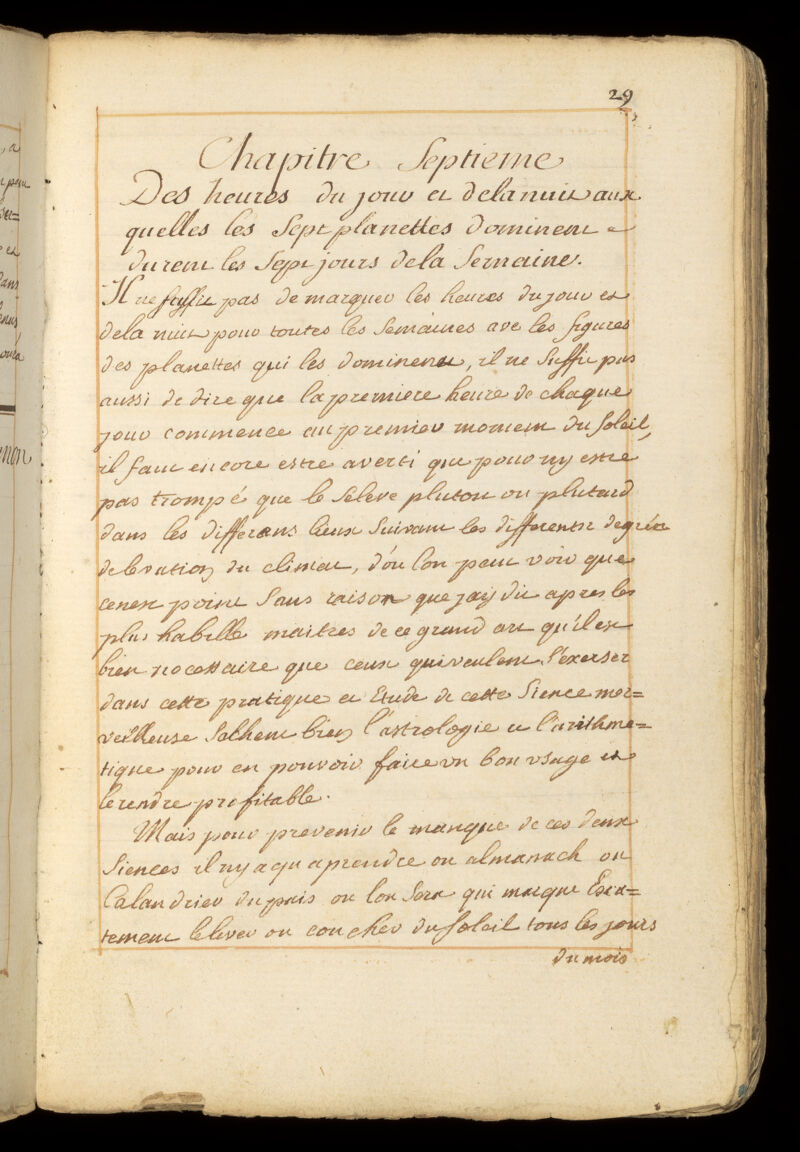 29
Chapitre Septieme
Des heures du jour et dela nuit aux
quelles les Sept planettes dominent
durent les Sept jours dela Semaine.
Il ne suffit pas de marquer les heures du jour et
dela nuit pour toutes les Semaines ave les figures
des planettes qui les dominent, il ne Suffit pas
aussi de dire que la premiere heure de chaque
jour commence au premier moment du Soleil,
il faut encore estre averti que pour ny estre
pas trompé que le Seleve plutou ou plutard
dans les differans lieux Suivant les differents degrée
delevation du climat, d'ou lon peut voir que
cenest point Sans raison que jaij dit apres les
plus habille maitres de ce grand art qu'il est
bien necessaire que ceux qui veulent S'exerser
dans cette pratique et Etude de cette Sience mer=
veilleuse Sachent bien l'astrologie et l'arithme=
tique pour en pouvoir faire un bon usage et
le rendre profitable.
Mais pour prevenir le manque de ces deux
Siences il ny a qu aprendre ou almanach ou
Calandrier du pais ou lon Sera qui marque Exa=
tement lelever ou coucher du Soleil tous les jours
du mois
, a
peu
et
dans
enus
mon